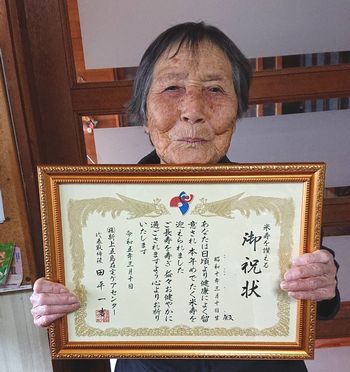 米寿を讃える
御祝状
昭和十年三月十日生
殿
あなたは日頃より健康によく留
意され本年めでたく米寿を
迎えられました
ご長寿を寿ぎ益々お健やかに
過ごされますよう心よりお祈り
いたします
令和五年三月十日
㈱新上五島在宅ケアセンター
代表取締役 田平一